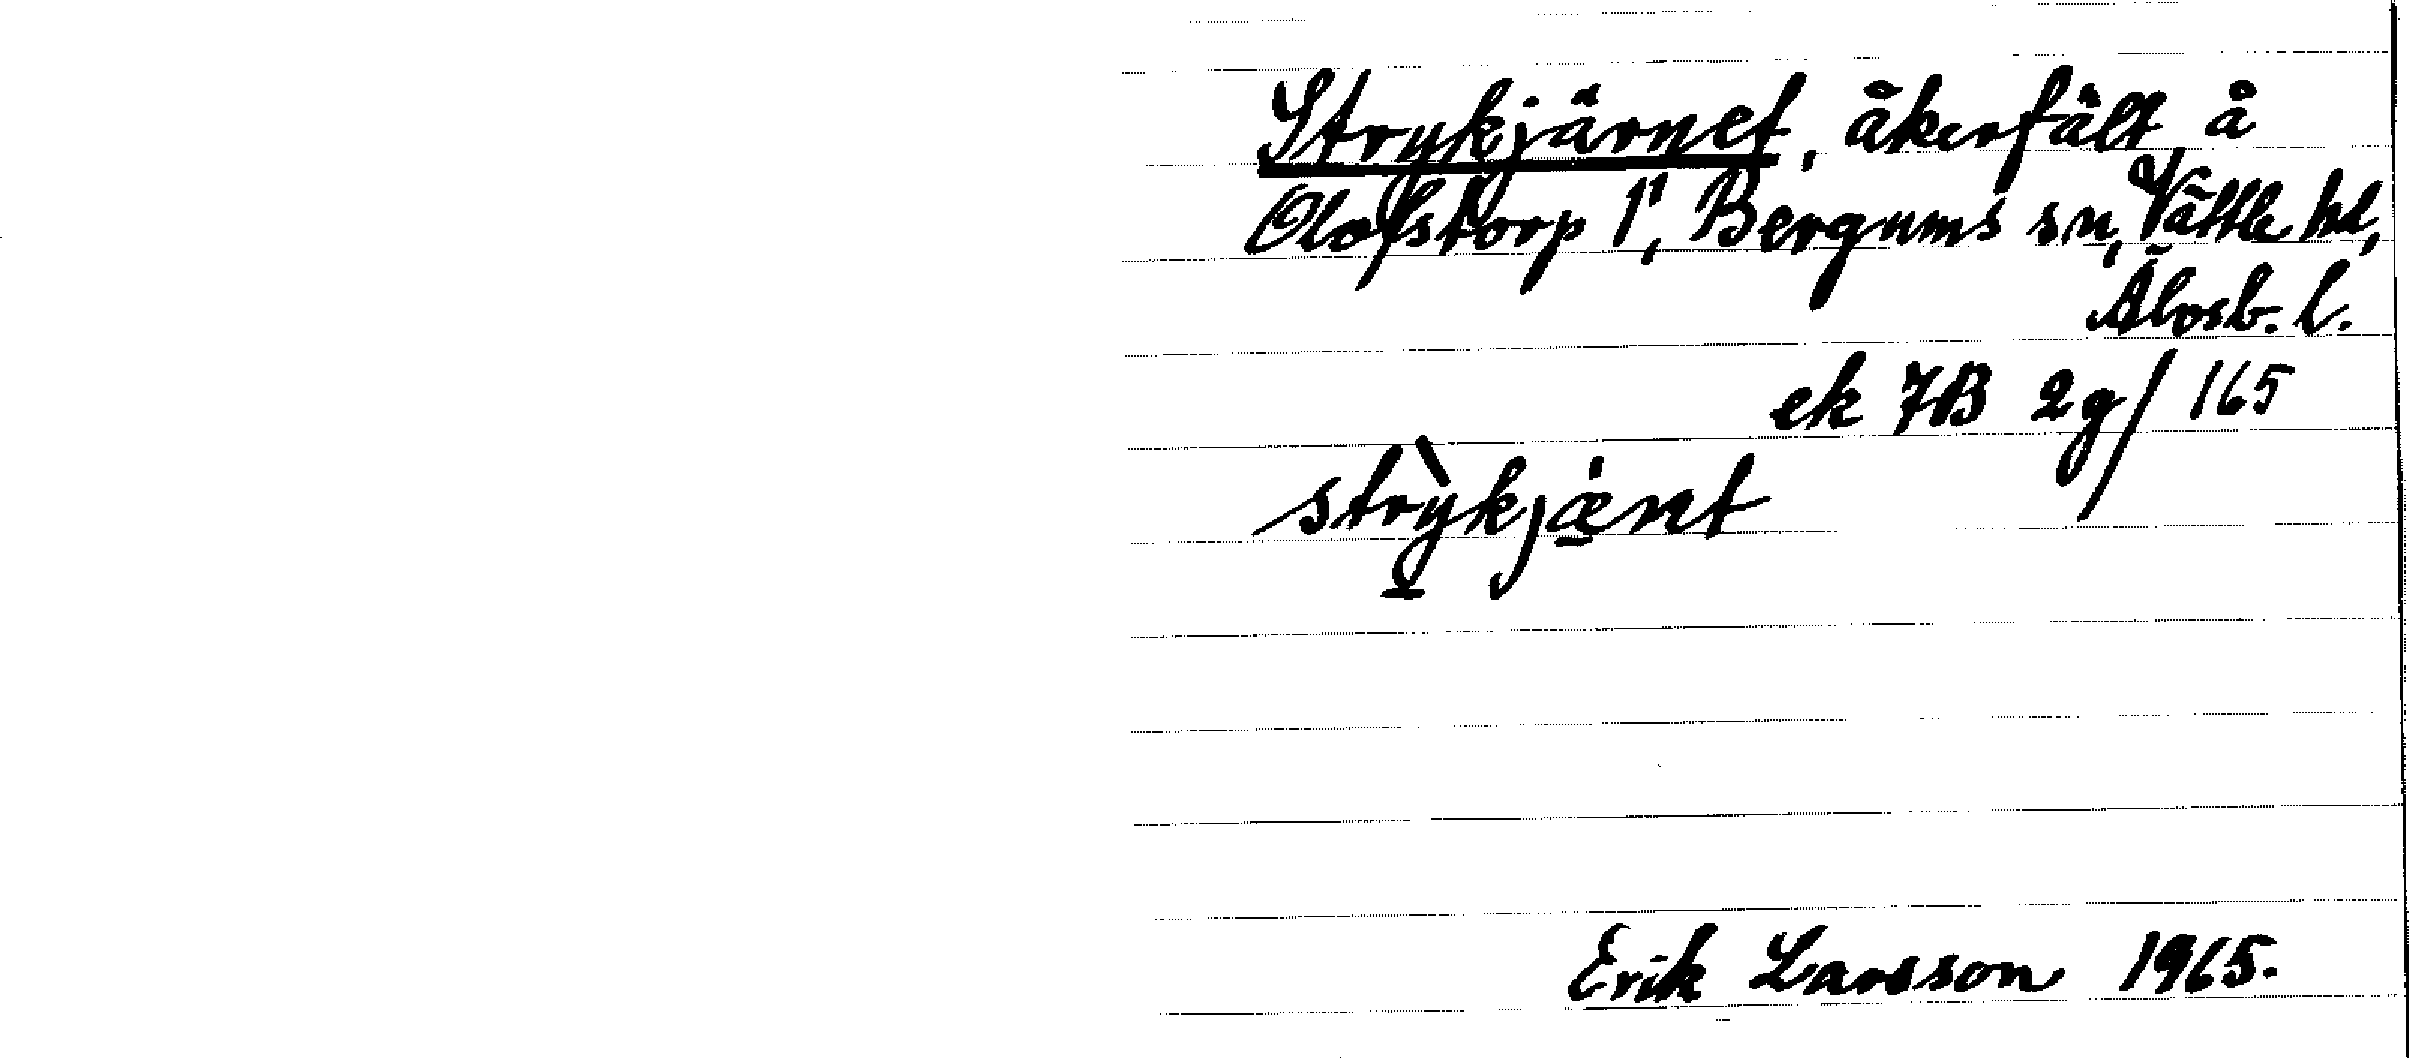 Strykjärnet, åkerfält å
Olofstorp 1¹, Bergums sn, Vättle hd,
Älvsb. l.
ek 7B 2g/165
strỳkjæ̀nt
Erik Larsson 1965.